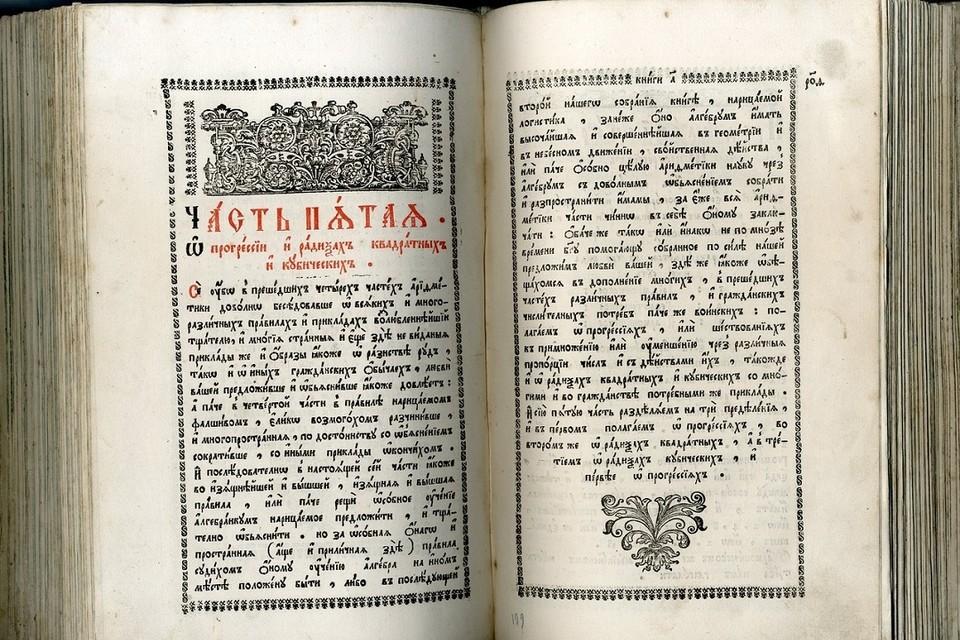 Ча́сть пѧ́таѧ .
Ѡ҆ прогре́ссїи и҆ ра́диѯахъ квадра́тныхъ
и҆ кꙋби́ческихъ .
Сѐ ᲂу҆́бѡ в̾преше́дшихъ четы́рехъ часте́хъ а҆рїѳме́-
тики дово́лнѡ бесѣ́довавше ѡ҆ всѧ́кихъ и҆ много-
разли́чныхъ пра́вилахъ и҆ прикла́дахъ возлю́бленнѣйшїй
тща́телю, и҆ мнѡ́гїѧ стра́нныѧ и҆ є҆щѐ здѣ̀ не ви́даныѧ
прикла́ды же и҆ ѻ҆́бразы ꙗ҆́коже ѡ҆ ра́знствѣ рꙋ́дъ ,
та́кѡ и҆ ѡ҆ и҆ны́хъ гражда́нскихъ ѻ҆бы́чаехъ , любвѝ
ва́шей предложи́вше и҆ ѡ҆б̾ѧсни́вше ꙗ҆́коже довлѣ́етъ :
а҆ па́че в̾ четве́ртой ча́сти в̾ пра́вилѣ нарица́емомъ
фалши́вомъ , є҆ли́кѡ возмого́хомъ разчини́вше ,
и҆ многопростра́ннаѧ , по досто́инствꙋ со ѡ҆б̾ѧсне́нїемъ
сократи́вше , со и҆ны́ми прикла́ды ѡ҆кончи́хомъ .
И҆ послѣ́дователнѡ в̾ настоѧ́щей се́й ча́сти ꙗ҆́коже
во и҆зѧ́щнѣйшей и҆ вы́шшей , и҆зѧ́щнаѧ и҆ вы́шшаѧ
пра́вила , и҆лѝ па́че рещѝ ѡ҆со́бное ᲂу҆че́нїе
а҆лгебра́икꙋмъ нарица́емое предложи́ти , и҆ тща́-
телнѡ ѡ҆б̾ѧсни́ти . но за ѡ҆со́бнаѧ ѻ҆́нагѡ и҆
простра́ннаѧ ( а҆́ще и҆ прили́чнаѧ здѣ̀ ) пра́вила,
сꙋди́хомъ ѻ҆́номꙋ ᲂу҆че́нїю а҆́лгебра на и҆но́мъ
мѣ́стѣ поло́женꙋ бы́ти , ли́бо въ послѣ́дꙋющей
кни́ги а҃
ро҃д.
второ́й на́шегѡ собра́нїѧ кни́гѣ , нарица́емой
логи́стика , зане́же ѻ҆́но а҆лгебрꙋмъ и҆́мать
высоча́йшаѧ и҆ соверше́ннѣйшаѧ въ геоме́трїи и҆
въ небе́сномъ движе́нїи , сво́йственнаѧ дѣ́йства ,
и҆лѝ па́че ѻ҆со́бно цѣ́лꙋю а҆риѳме́тїки наꙋ́кꙋ чре́з
а҆́лгебрꙋмъ съ дово́лнымъ ѡ҆б̾ѧсне́нїемъ собра́ти
и҆ распространи́ти и҆́мамы , за є҆́же всѧ̀ а҆риѳ-
ме́тїки ча́сти чи́ннѡ въ себѣ̀ ѻ҆́номꙋ заклю-
ча́ти : Ѻ҆ба́че же та́кѡ и҆лѝ и҆на́кѡ не по мно́зѣ
вре́мени бг҃ꙋ помога́ющꙋ собранное по си́лѣ на́шей
предло́жимъ любвѝ ва́шей , здѣ́ же ꙗ҆́коже ѡ҆бѣ-
ща́хомсѧ въ дополне́нїе мно́гихъ , в̾ преше́дшихъ
часте́хъ разли́чныхъ пра́вилъ , и҆ гражда́нскихъ
числи́телныхъ потре́бъ па́че же во́инскихъ : по-
лага́емъ ѡ҆ прогре́ссїѧхъ , и҆лѝ ше́ствованїѧхъ
въ примноже́нїю и҆лѝ ᲂу҆менше́нїю чрез̾ разли́чныѧ
пропо́рцїи чи́слъ и҆ съ дѣ́йствами и҆́хъ , та́кожде
и҆ ѡ҆ ра́диѯахъ квадра́тныхъ и҆ кꙋби́ческихъ со мно́-
гими и҆ во гражда́нствѣ потре́бными же прикла́ды .
И҆ сїю̀ пѧ́тꙋю ча́сть раздѣлѧ́емъ на трѝ предѣле́нїѧ ,
и҆ въ пе́рвомъ полага́емъ ѡ҆ прогре́ссїѧхъ , во
второ́мъ же ѡ҆ ра́диѯахъ квадра́тныхъ , а҆ въ тре́-
тїемъ ѡ҆ ра́диѯахъ кꙋби́ческихъ , и҆
пе́рвѣе ѡ҆ прогре́ссїѧхъ .
189